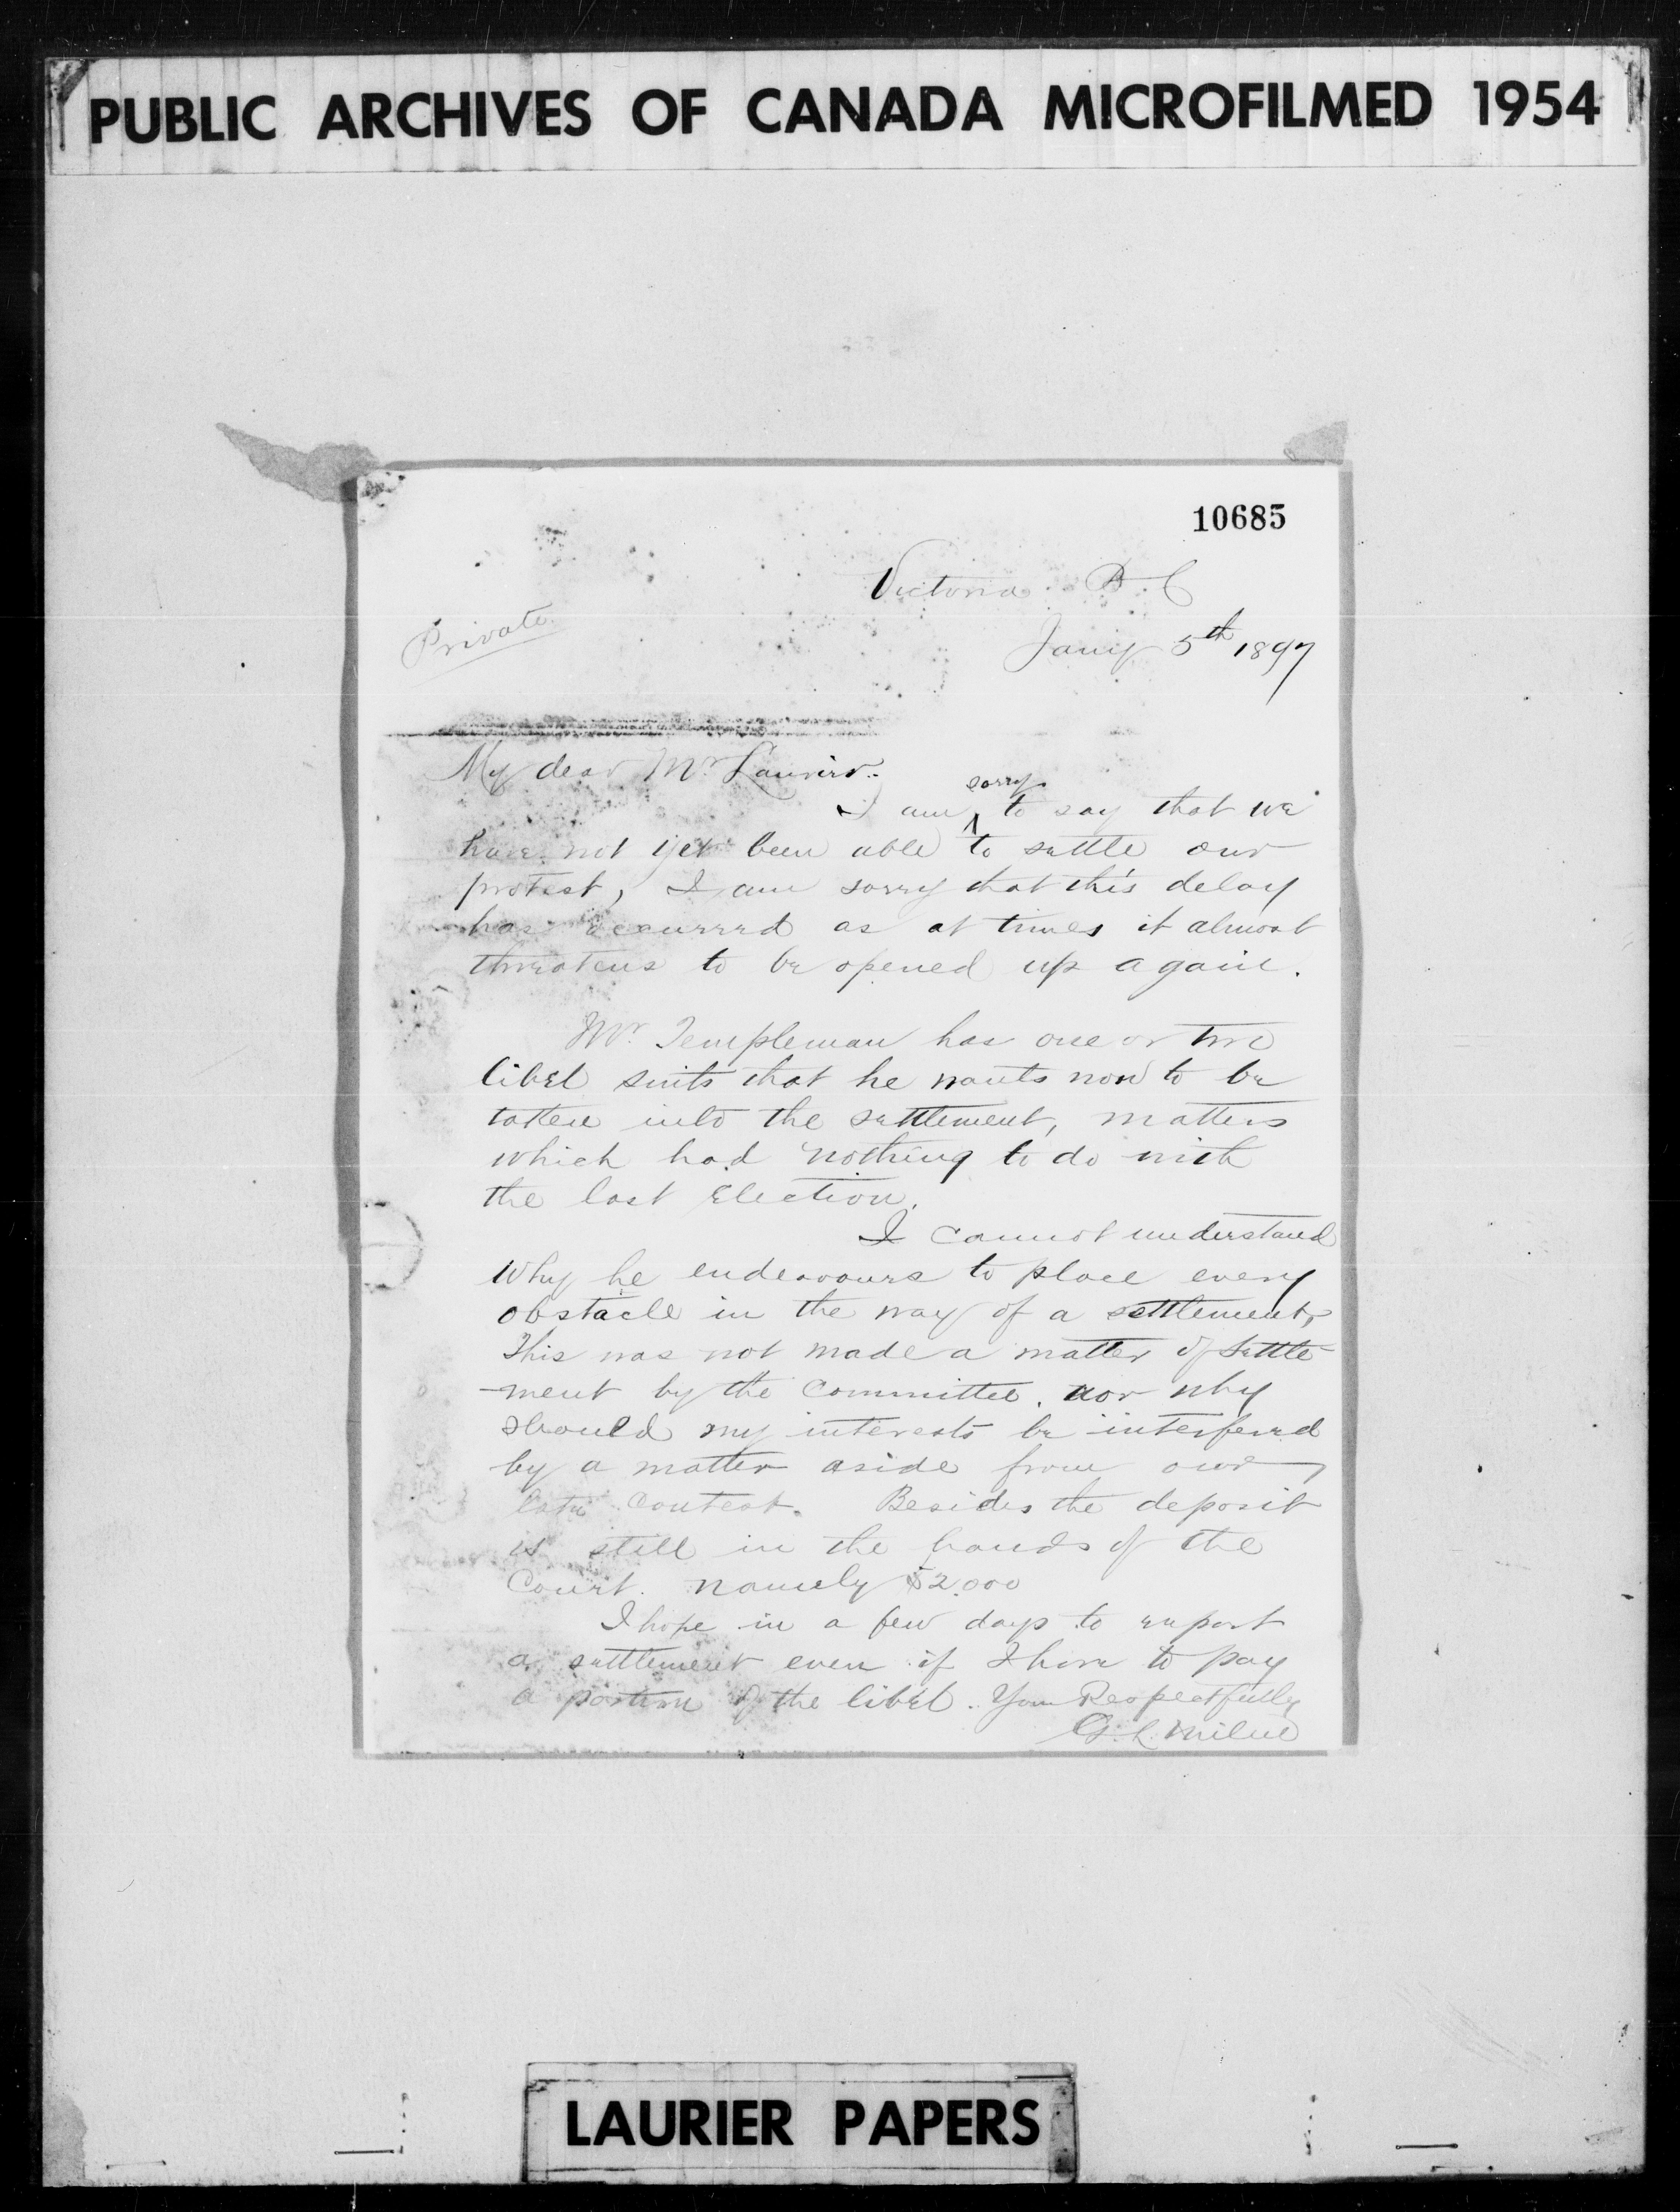 PUBLIC ARCHIVES OF CANADA MICROFILMED 1954
10685
Victoria B.C
Private
Jany 5th 1897
My dear Mr Laurier.
I am sorry to say that we
have not yet been able to settle our
protest, I am sorry that this delay
has occurred as at times it almost
threatens to be opened up again.
Mr. Templeman has one or two
libel suits that he wants now to be
taken into the settlement, matters
which had nothing to do with
the last election.
I cannot understand
why he endeavours to place every
obstacle in the way of a settlement,
This was not made a matter of settle-
-ment by the committee. nor why
should my interests be interfered
by a matter aside from our
late contest. Besides the deposit
is still in the hands of the
Court. namely $2.000
I hope in a few days to report
a settlement even if I have to pay
a portion of the libel. Your Respectfully
G.L. Milne
LAURIER PAPERS